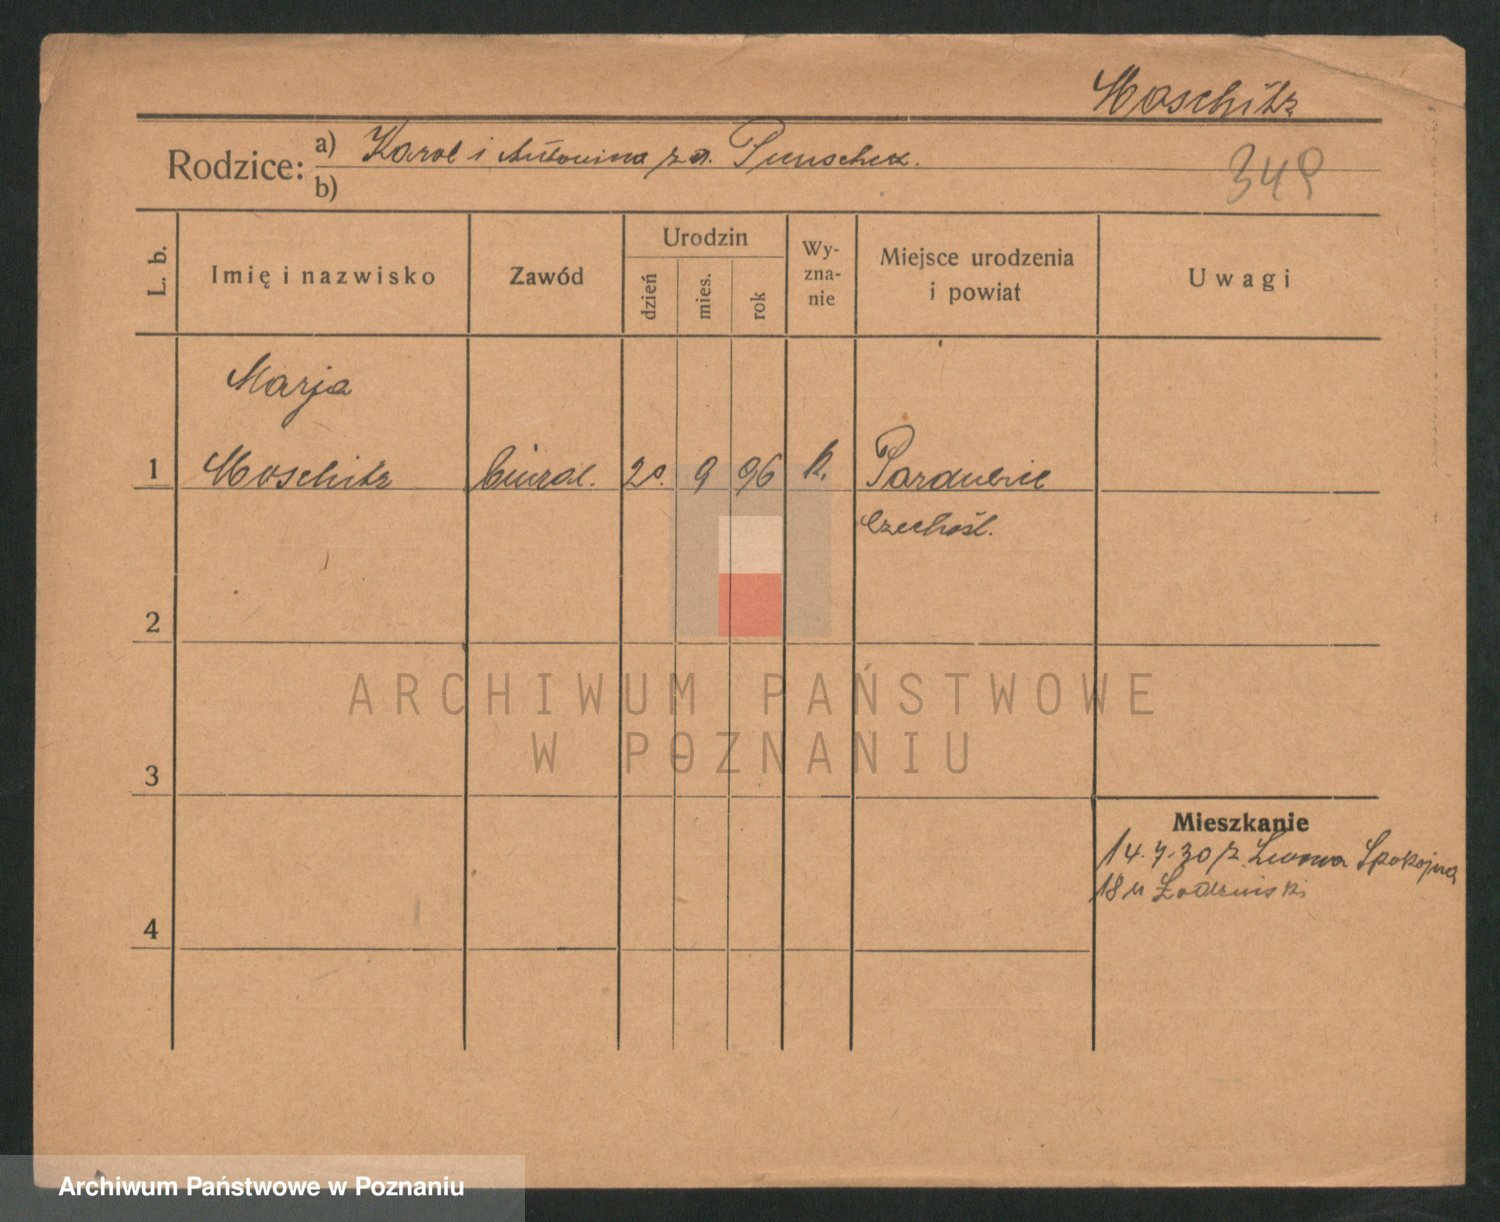 Moschitz
Rodzice: a) Karol i Antonina z d.
b)
349
L. b.
Imię i nazwisko
Zawód
Urodzin
dzień
mies.
rok
Wy-
zna-
nie
Miejsce urodzenia
i powiat
Uwagi
Marja
1 Moschitz biural. 9 96 k. Pardubice
Czechosł.
2
ARCHIWUM PAŃSTWOWE
W POZNANIU
3
Mieszkanie
14.7.30 z Lwowa Spokojna
18
4
Archiwum Państwowe w Poznaniu